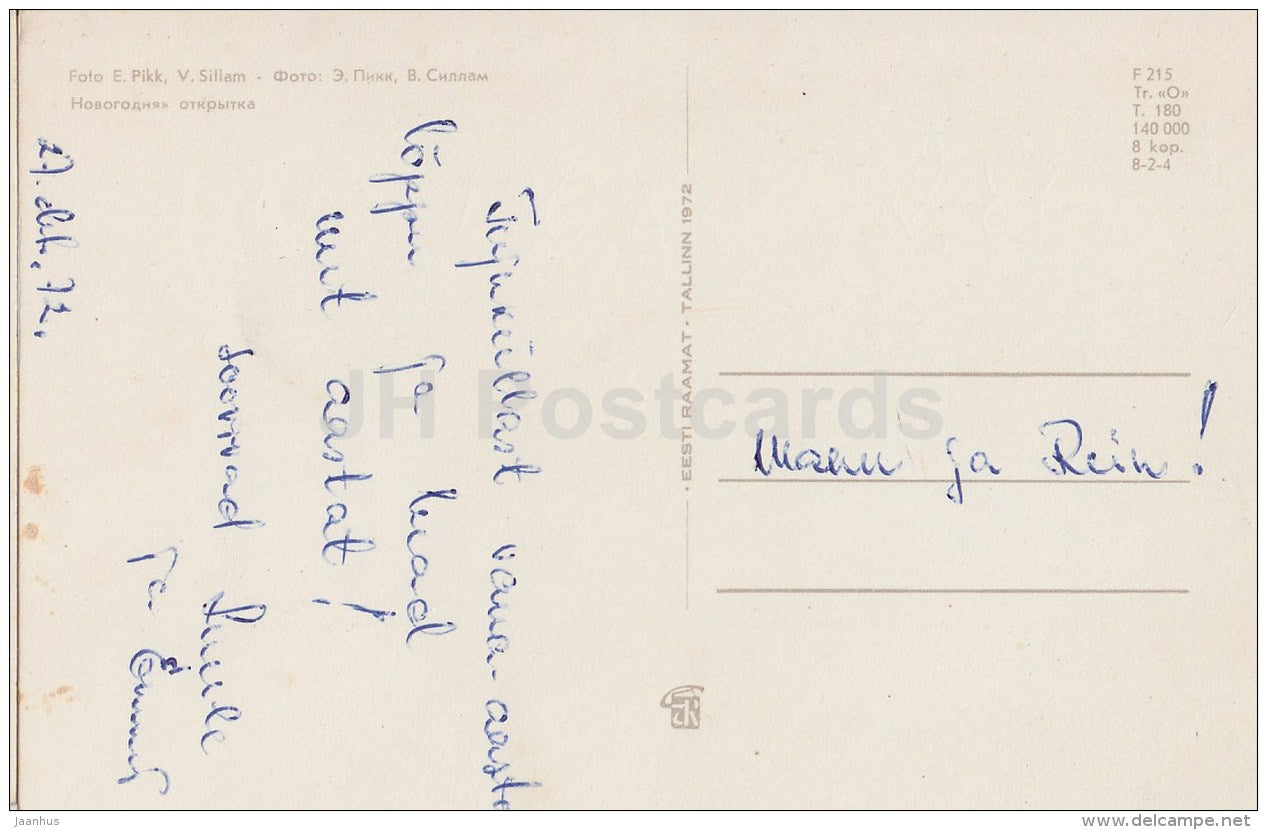 Foto E. Pikk, V. Sillam - Фото: Э. Пикк, В. Силлам
Новогодняя открытка
F 215
Tr. «O»
T. 180
140 000
8 kop.
8-2-4
Tujuküllast vana-aasta
lõppu ja head
uut aastat!
soovivad
ja
27. dets. 72.
• EESTI RAAMAT • TALLINN 1972
Manu ja Rein!
JH Postcards
Jaanhus
www.delcampe.net